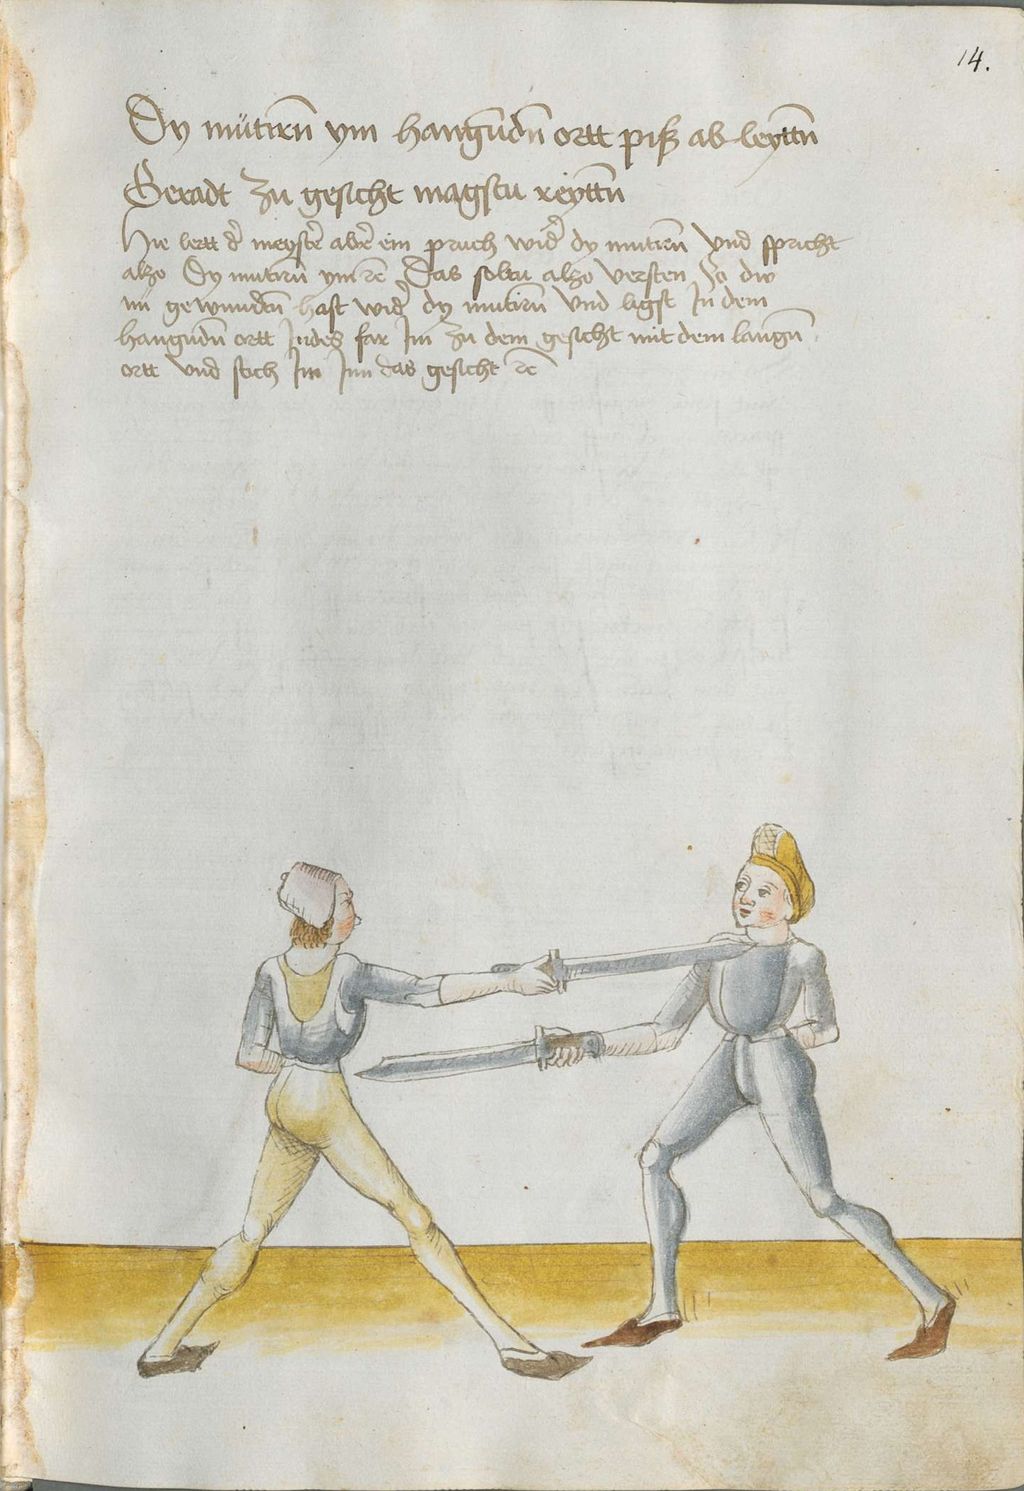 14.
Dy mütirñ ym hangũdñ ortt piß ab leyttñ
Geradt zu gesicht magstu reyttñ
Hie lertt d' meyster aber ein pruch wid' dy mutirñ Vnd spricht
alzo Dy mutirñ ym rc Das soltu alzo versten So dw
nü gewundñ hast wid' dy mutirñ Vnd ligst In dem
hangũdñ ortt Indes far Im zu dem gesicht mit dem langñ
ortt Vnd stich Im Inn das gesicht rc